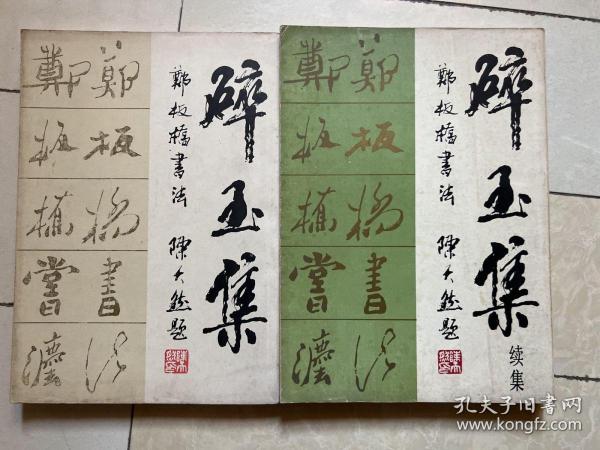 碎玉集
鄭板橋書法
陳大
題
鄭板橋書法
鄭板橋書灋
碎玉集
续集
鄭板橋書法
陳大
題
鄭板橋書法
鄭板橋書灋
孔夫子旧书网
www.kongfz.com